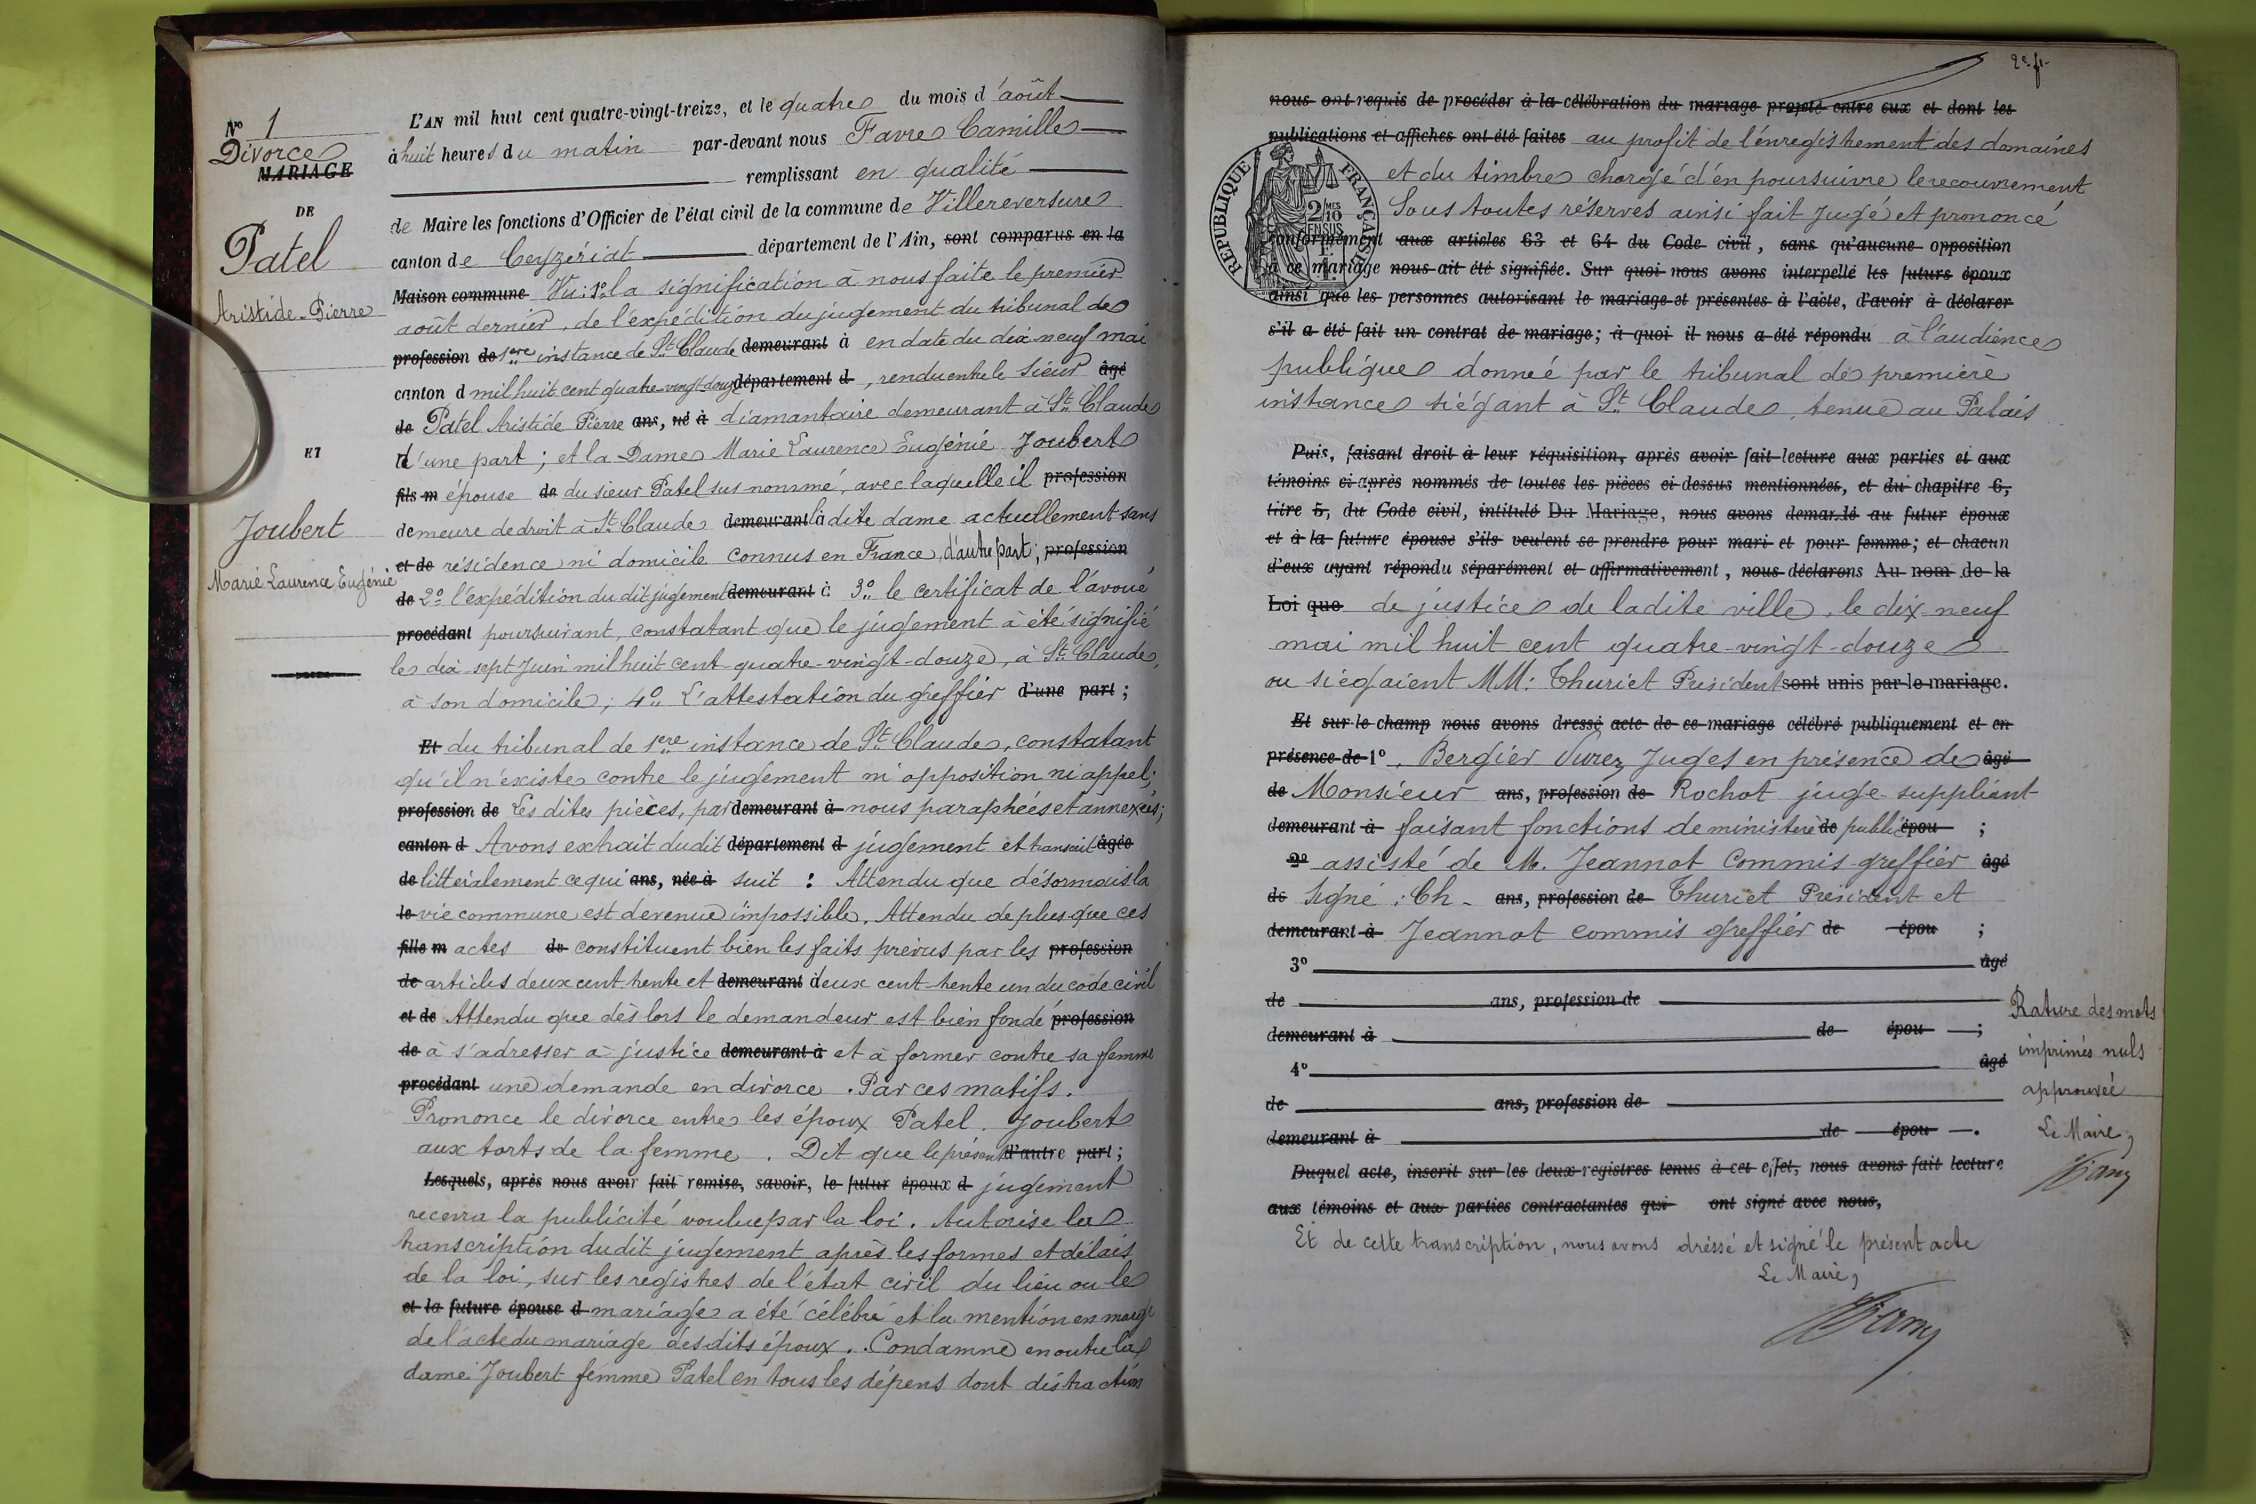 N° 1
Divorce
MARIAGE
DE
Patel
Aristide-Pierre
ET
Joubert
Marie Laurence Eugénie
L'AN mil huit cent quatre-vingt-treize, et le quatre du mois d'août
à huit heures du matin par-devant nous Favre Camille
remplissant en qualité
de Maire les fonctions d'Officier de l'état civil de la commune de Villereversure
canton de Ceyzériat département de l'Ain, sont comparus en la
Maison commune Vu: 1° la signification à nous faite le premier
août dernier, de l'expédition du jugement du tribunal de
profession de 1ere instance de St Claude demeurant à en date du dix-neuf mai
canton d mil huit cent quatre-vingt-douze département d, rendu entre le sieur âgé
de Patel Aristide Pierre ans, né à diamantaire demeurant à St Claude
d'une part; et la Dame Marie Laurence Eugénie Joubert
fils m épouse de du sieur Patel sus-nommé, avec laquelle il profession
demeure de droit à St Claude demeurant là dite dame actuellement sans
et de résidence ni domicile connus en France, d'autre part; profession
de 2° l'expédition du dit jugement demeurant à 3° le certificat de l'avoué
procédant poursuivant, constatant que le jugement à été signifié
le dix-sept Juin mil huit cent quatre-vingt-douze, à St Claude,
à son domicile; 4° L'attestation du greffier d'une part;
Et du tribunal de 1ere instance de St Claude, constatant
qu'il n'existe contre le jugement ni opposition ni appel;
profession de Les dites pièces, par demeurant à nous paraphées et annexées;
canton d Avons extrait dudit département d jugement et transcrit âgée
de litteralement ce qui ans, née à suit : Attendu que désormais la
le vie commune est devenue impossible. Attendu de plus que ces
fille m actes de constituent bien les faits prévus par les profession
de articles deux cent trente et demeurant à deux cent-trente un du code civil
et de Attendu que dès lors le demandeur est bien fondé profession
de à s'adresser à justice demeurant à et à former contre sa femme
procédant une demande en divorce. Par ces motifs.
Prononce le divorce entre les époux Patel. Joubert
aux torts de la femme. Dit que le présent d'autre part;
Lesquels, après nous avoir fait remise, savoir, le futur époux d jugement
recevra la publicité voulue par la loi. Autorise la
transcription dudit jugement après les formes et délais
de la loi, sur les registres de l'état civil du lieu ou le
et la future épouse d mariage a été célébré et la mention en marge
de l'acte du mariage desdits époux. Condamne en outre la
dame Joubert femme Patel en tous les dépens dont distraction
2e f.
nous ont requis de procéder à la célébration du mariage projeté entre eux et dont les
publications et affiches ont été faites au profit de l'énregistrement des domaines
et du timbre chargé d'en poursuivre le recouvrement
Sous toutes réserves ainsi fait jugé et prononcé
RÉPUBLIQUE FRANÇAISE
2/10 MES
EN SUS
conformément aux articles 63 et 64 du Code civil, sans qu'aucune opposition
à ce mariage nous ait été signifiée. Sur quoi nous avons interpellé les futurs époux
ainsi que les personnes autorisant le mariage et présentes à l'acte, d'avoir à déclarer
s'il a été fait un contrat de mariage; à quoi il nous a été répondu à l'audience
publique donnée par le tribunal de première
instance siégant à St Claude, tenue au Palais
Puis, faisant droit à leur réquisition, après avoir fait lecture aux parties et aux
témoins ci-après nommés de toutes les pièces ci-dessus mentionnées, et du chapitre 6,
titre 5, du Code civil, intitulé Du Mariage, nous avons demandé au futur époux
et à la future épouse s'ils veulent se prendre pour mari et pour femme; et chacun
d'eux ayant répondu séparément et affirmativement, nous déclarons Au nom de la
Loi que de justice de ladite ville, le dix-neuf
mai mil huit cent quatre-vingt-douze
ou siégaient MM: Thuriet President sont unis par le mariage.
Et sur-le-champ nous avons dressé acte de ce mariage célébré publiquement et en
présence de 1°. Bergier Vurez Juges en présence de âgé
de Monsieur ans, profession de Rochot juge suppliant
demeurant à faisant fonctions de ministère de public épou ;
2° assisté de M. Jeannot Commis-greffier âgé
de Signé: Ch. ans, profession de Thuriet President et
demeurant à Jeannot commis greffier de épou ;
3° âgé
de ans, profession de
demeurant à de épou ;
4° âgé
de ans, profession de
demeurant à de épou .
Duquel acte, inscrit sur les deux registres tenus à cet effet, nous avons fait lecture
aux témoins et aux parties contractantes qui ont signé avec nous,
Et de cette transcription, nous avons dréssé et signé le présent acte
Le Maire,
Rature des mots
imprimés nuls
approuvée
Le Maire,